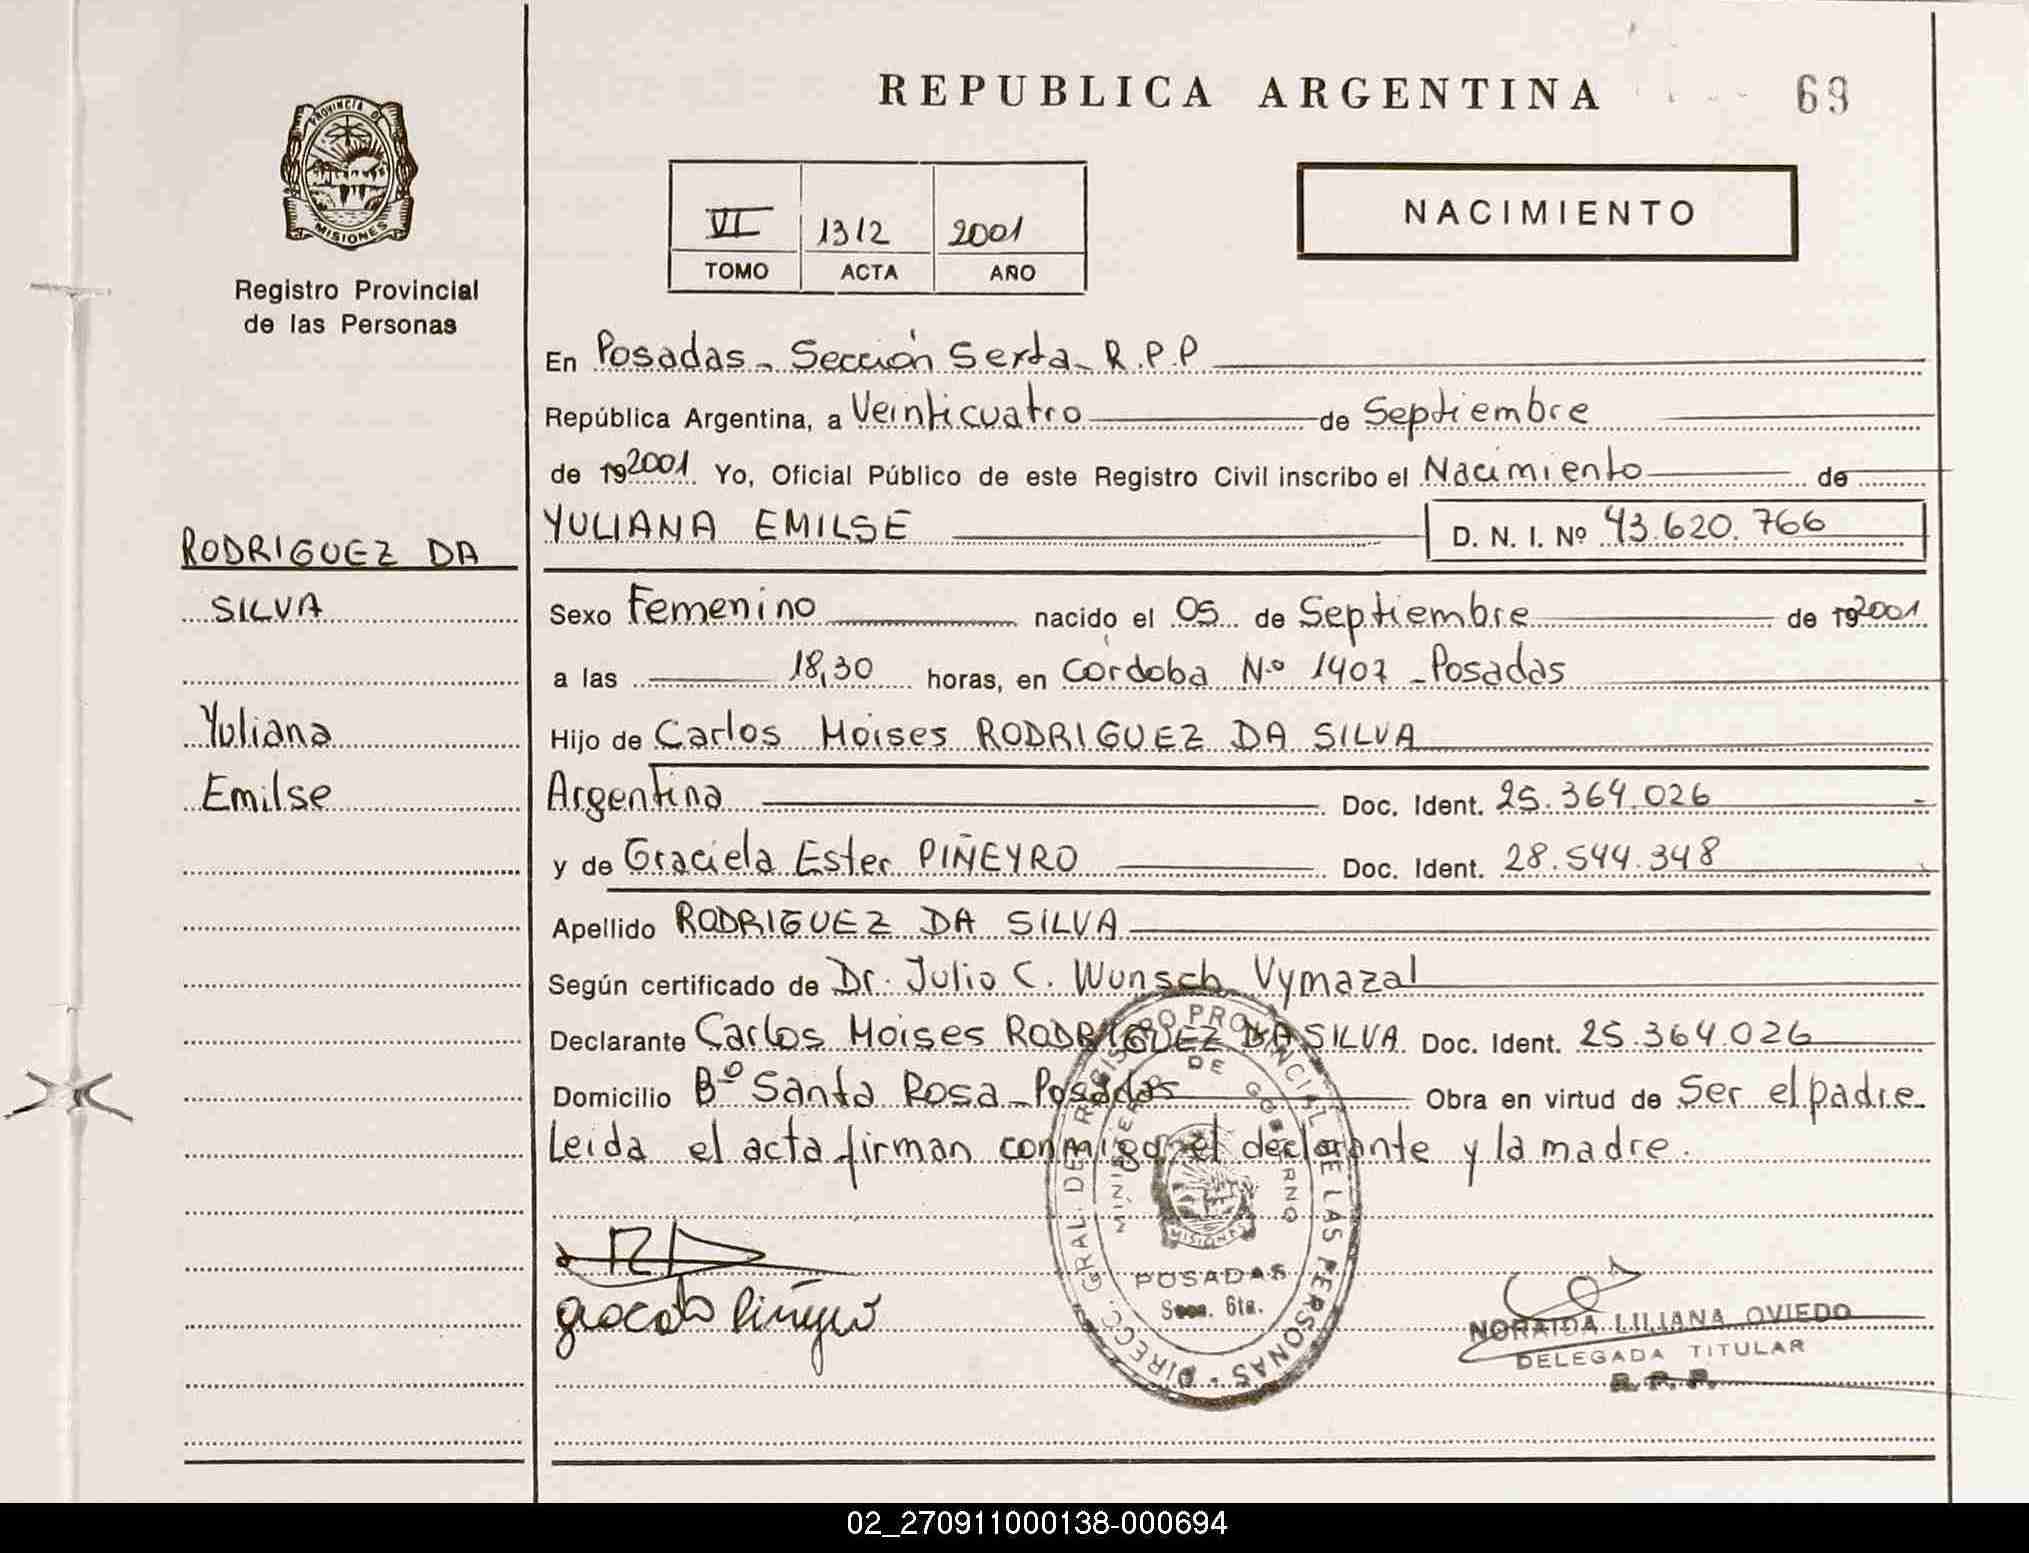 REPUBLICA ARGENTINA
69
PROVINCIA DE
MISIONES
Registro Provincial
de las Personas
VI 1312 2001
TOMO ACTA AÑO
NACIMIENTO
En Posadas - Sección Sexta - R.P.P
República Argentina, a Veinticuatro de Septiembre
de 192001 Yo, Oficial Público de este Registro Civil inscribo el Nacimiento de
YULIANA EMILSE D. N. I. Nº 43.620.766
RODRIGUEZ DA
SILVA
Yuliana
Emilse
Sexo Femenino nacido el 05 de Septiembre de 192001
a las 18,30 horas, en Córdoba Nº 1407 - Posadas
Hijo de Carlos Moises RODRIGUEZ DA SILVA
Argentina Doc. Ident. 25.364.026
y de Graciela Ester PIÑEYRO Doc. Ident. 28.544.348
Apellido RODRIGUEZ DA SILVA
Según certificado de Dr. Julio C. Wunsch Vymazal
Declarante Carlos Moises RODRIGUEZ DA SILVA Doc. Ident. 25.364.026
Domicilio Bº Santa Rosa - Posadas Obra en virtud de Ser el padre
Leida el acta firman conmigo el declarante y la madre.
DIRECC. GRAL. DEL REGISTRO PROVINCIAL DE LAS PERSONAS
MINISTERIO DE GOBIERNO
MISIONES
POSADAS
Secc. 6ta.
Piñeyro
NORAIDA LILIANA OVIEDO
DELEGADA TITULAR
R. P. P.
02_270911000138-000694